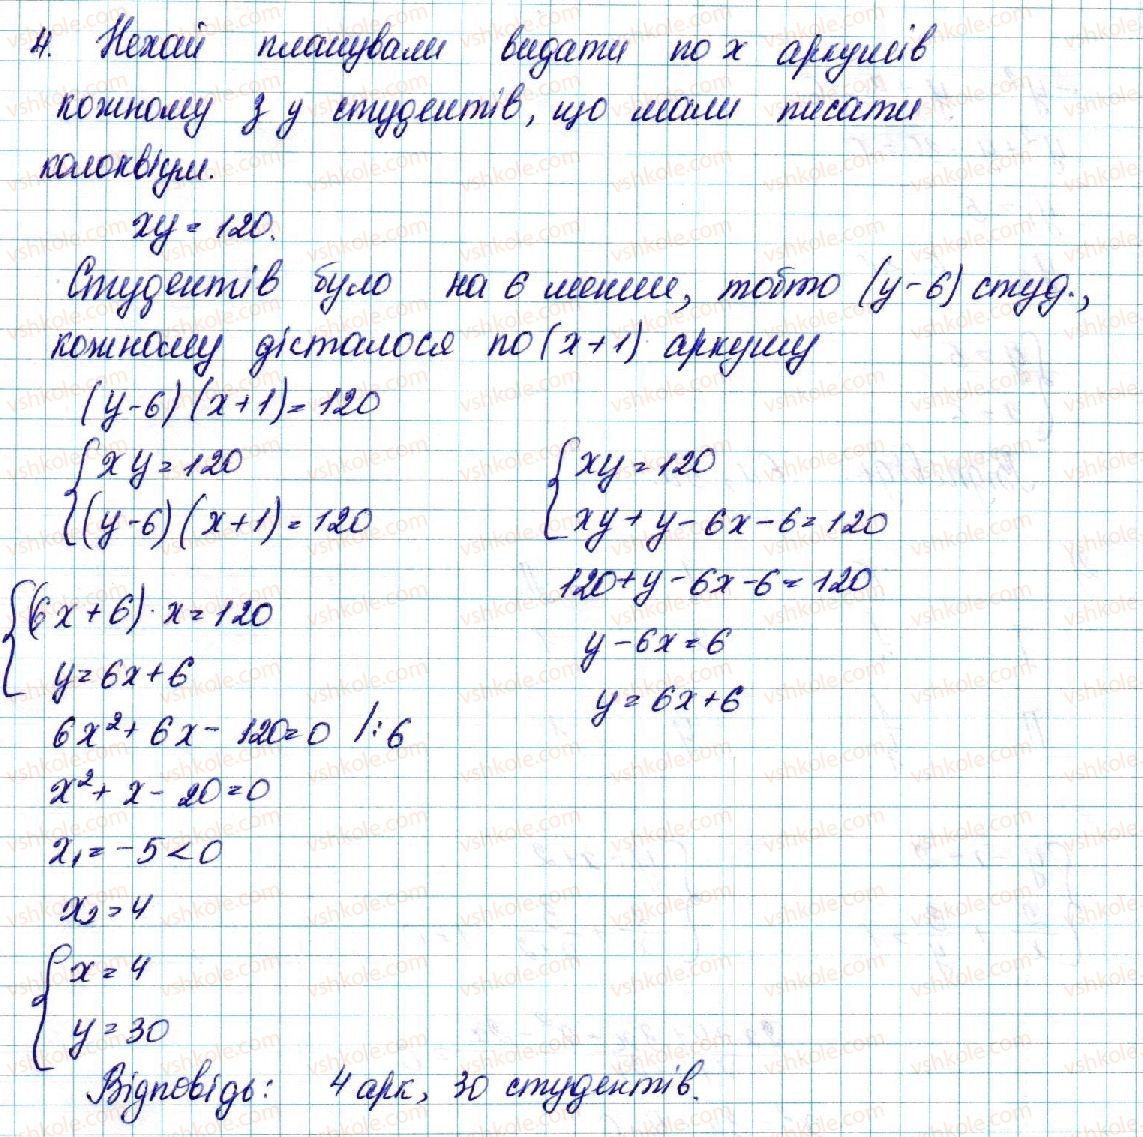 4. Нехай планували видати по x аркушів
кожному з y студентів, що мали писати
колоквіум.
xy = 120.
Студентів було на 6 менше, тобто (y-6) студ.,
кожному дісталося по (x+1) аркушу
(y-6)(x+1)=120
{xy=120
{(y-6)(x+1)=120
{xy=120
{xy+y-6x-6=120
120+y-6x-6=120
y-6x=6
y=6x+6
{(6x+6)·x=120
{y=6x+6
6x²+6x-120=0 /:6
x²+x-20=0
x₁=-5<0
x₂=4
{x=4
{y=30
Відповідь: 4 арк, 30 студентів.
vshkole.com